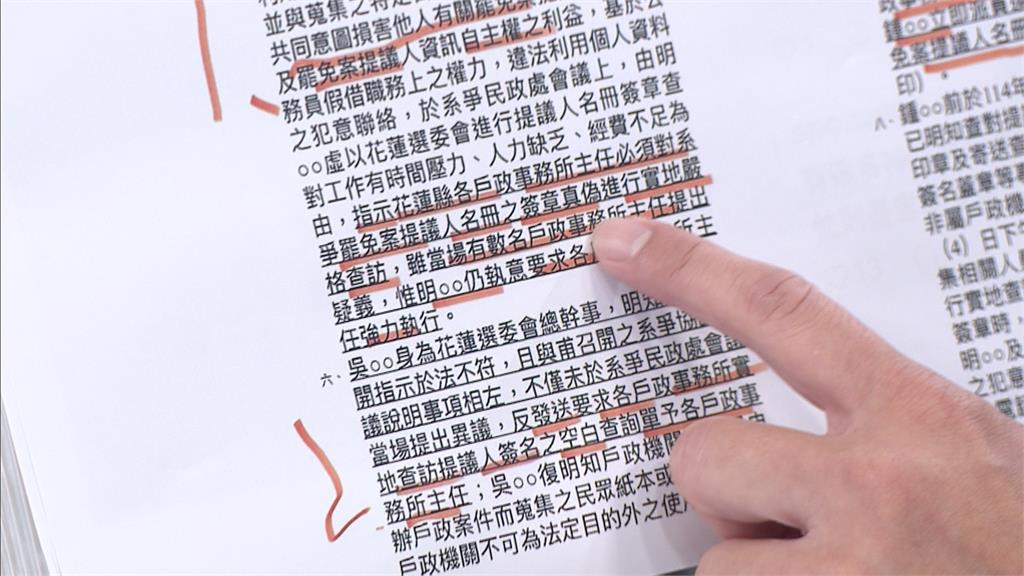 並與蒐集之特定
共同意圖損害他人有關罷免案
及罷免案提議人資訊自主權之利益，基於公
務員假借職務上之權力，違法利用個人資料
之犯意聯絡，於系爭民政處會議上，由明
○○虛以花蓮選委會進行提議人名冊簽章查
對工作有時間壓力、人力缺乏、經費不足為
由，指示花蓮縣各戶政事務所主任必須對系
爭罷免案提議人名冊之簽章真偽進行實地嚴
格查訪，雖當場有數名戶政事務所主任提出
疑義，惟明○○仍執意要求各 所主
任強力執行。
六、
吳○○身為花蓮選委會總幹事，明知
開指示於法不符，且與甫召開之系爭協
議說明事項相左，不僅未於系爭民政處會
當場提出異議，反發送要求各戶政事務所實
地查訪提議人簽名之空白查詢單予各戶政事
務所主任；吳○○復明知戶政機關
辦戶政案件而蒐集之民眾紙本或
戶政機關不可為法定目的外之使
鍾○○立即派員
免案提議人名冊
印）。
八、
鍾○○前於114年
已明知查對提
印章及寄送查
簽名蓋章等事
非屬戶政機
(4) 日下午
集相關人
行實地查
簽章時，
明○○及
之犯意
民政